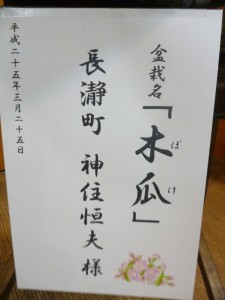 盆栽名
「木瓜」
ぼけ
長瀞町 神住恒夫様
平成二十五年三月二十五日